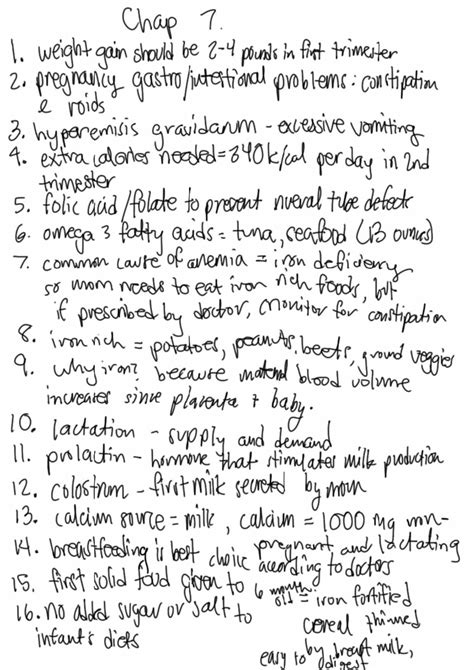 Chap 7.
1. weight gain should be 2-4 pounds in first trimester
2. pregnancy gastro/intestional problems: constipation
& roids
3. hyperemisis gravidarum - excessive vomiting
4. extra calories needed = 340 k/cal per day in 2nd
trimester
5. folic acid/folate to prevent nueral tube defects
6. omega 3 fatty acids = tuna, seafood (13 ounces)
7. common cause of anemia = iron deficiency
so mom needs to eat iron rich foods, but
if prescribed by doctor, monitor for constipation
8. iron rich = potatoes, peanuts, beets, ground veggies
9. why iron? because maternal blood volume
increases since placenta + baby.
10. lactation - supply and demand
11. prolactin - hormone that stimulates milk production
12. colostrum - first milk secreted by mom
13. calcium source = milk, calcium = 1000 mg
pregnant and lactating
14. breastfeeding is best choice according to doctors
15. first solid food given to 6 month old = iron fortified
cereal thinned
by breast milk,
easy to digest
16. no added sugar or salt to
infant's diets